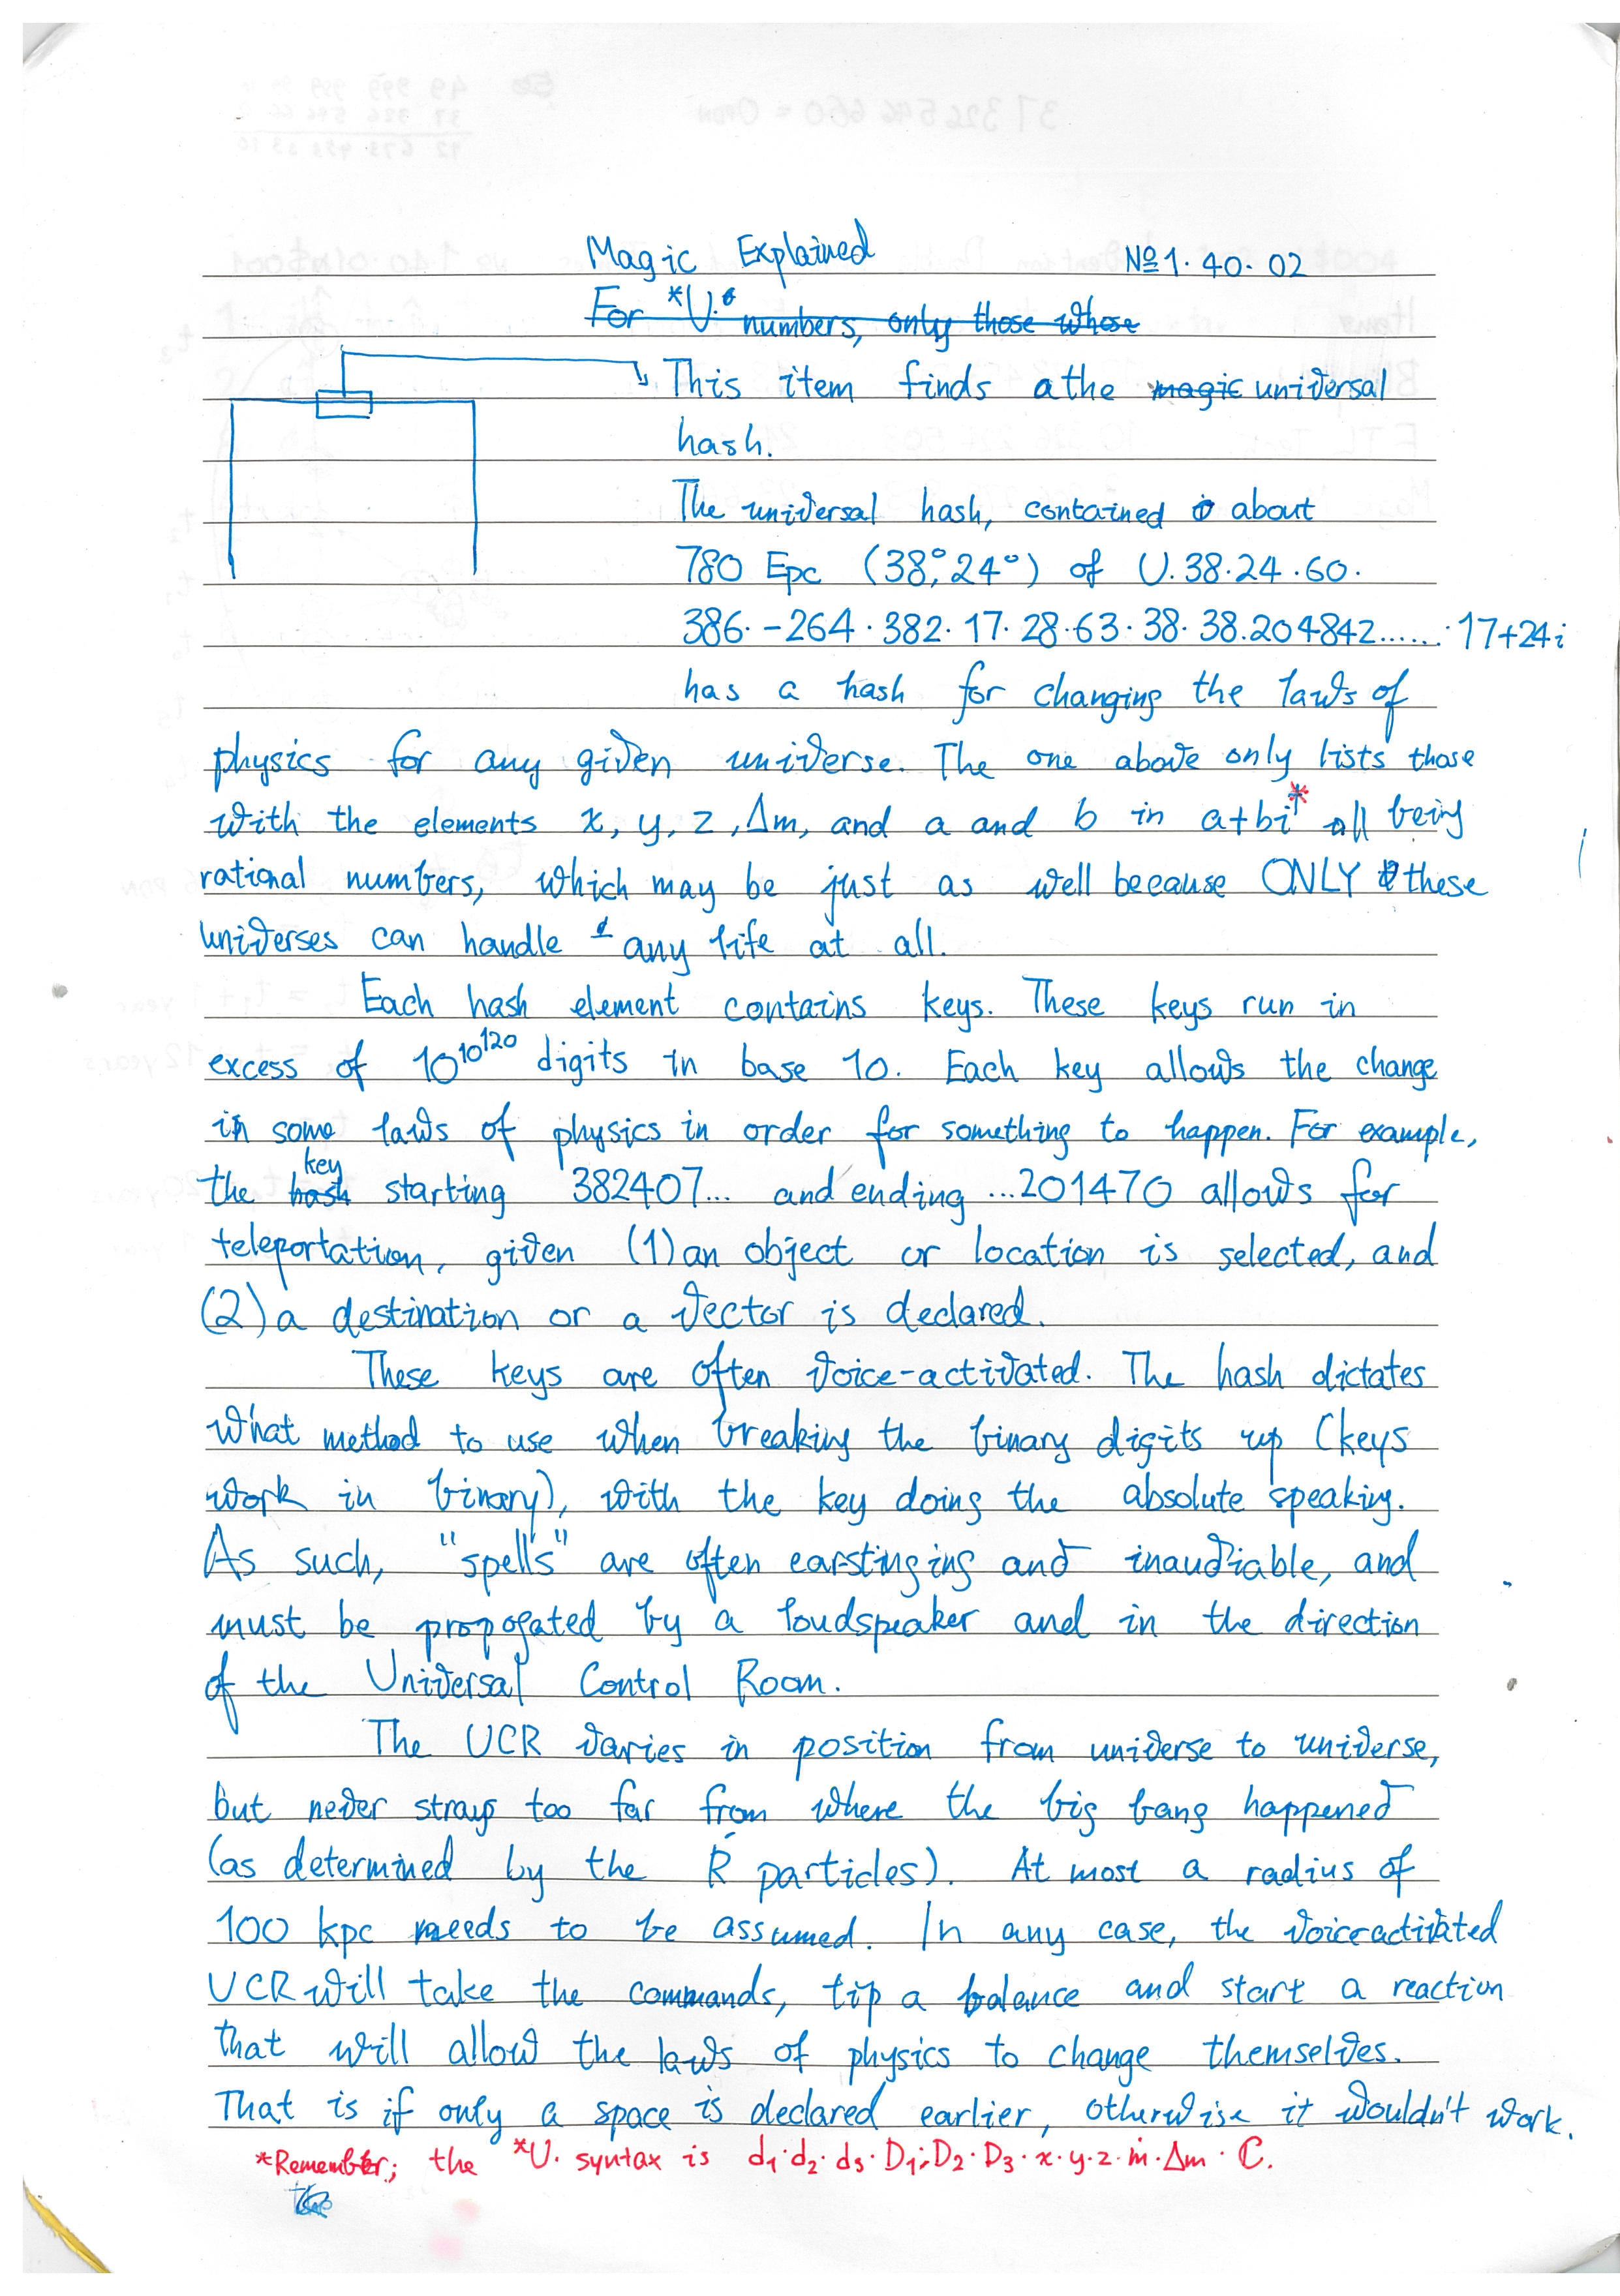 Magic Explained №1.40.02
For *U. numbers, only those whose
This item finds a the magic universal
hash.
The universal hash, contained about
780 Epc (38°, 24°) of U.38.24.60.
386.-264.382.17.28.63.38.38.204842.......17+24i
has a hash for changing the laws of
physics for any given universe. The one above only lists those
with the elements x, y, z, Δm, and a and b in a+bi* all being
rational numbers, which may be just as well because ONLY these
universes can handle any life at all.
Each hash element contains keys. These keys run in
excess of 10^10^120 digits in base 10. Each key allows the change
in some laws of physics in order for something to happen. For example,
the hash key starting 382407... and ending ...201470 allows for
teleportation, given (1) an object or location is selected, and
(2) a destination or a vector is declared.
These keys are often voice-activated. The hash dictates
what method to use when breaking the binary digits up (keys
work in binary), with the key doing the absolute speaking.
As such, "spells" are often earstinging and inaudiable, and
must be propogated by a loudspeaker and in the direction
of the Universal Control Room.
The UCR varies in position from universe to universe,
but never strays too far from where the big bang happened
(as determined by the Ŕ particles). At most a radius of
100 kpc needs to be assumed. In any case, the voiceactivated
UCR will take the commands, tip a balance and start a reaction
that will allow the laws of physics to change themselves.
That is if only a space is declared earlier, otherwise it wouldn't work.
*Remember; the *U. syntax is d₁.d₂.d₃.D₁.D₂.D₃.x.y.z.ṁ.Δm.C.